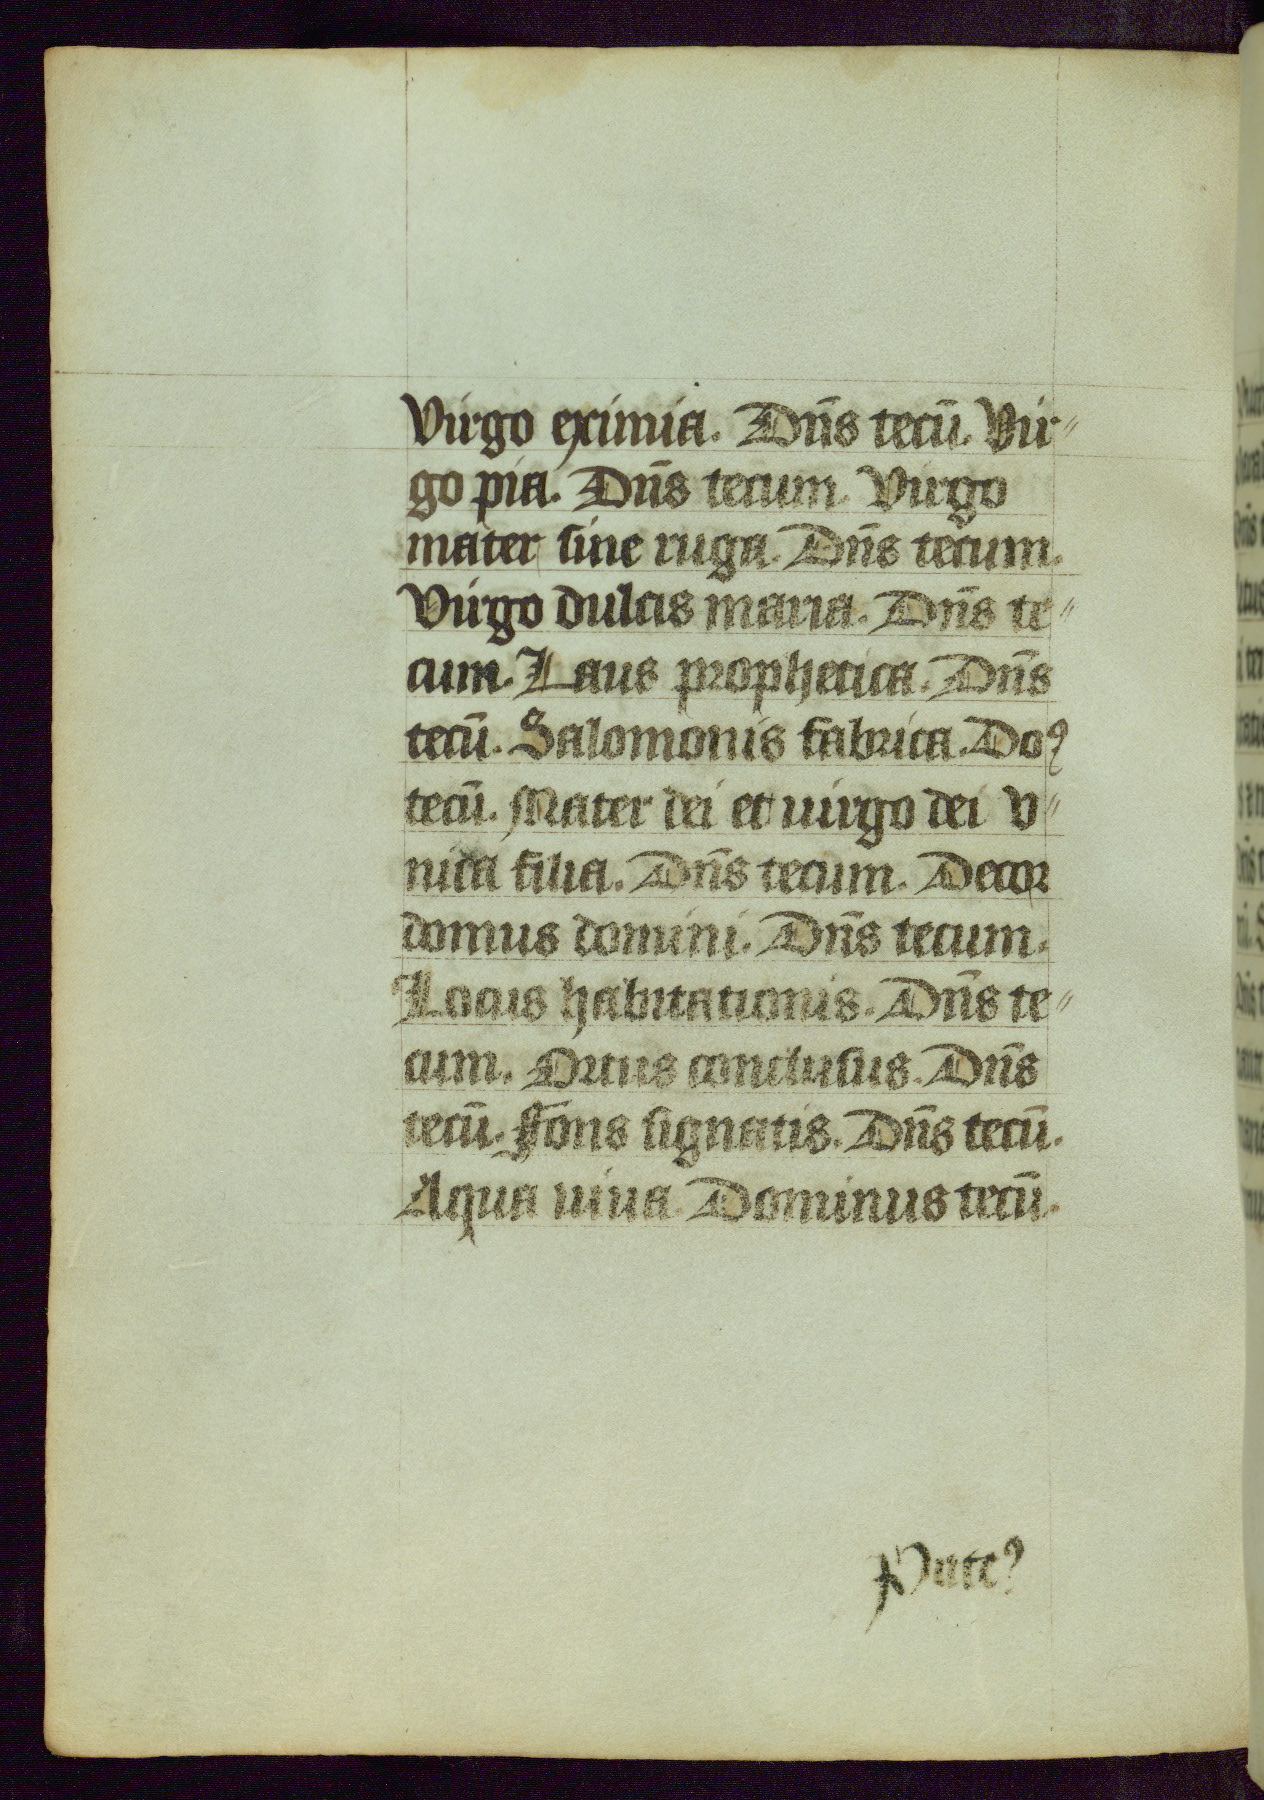 Virgo eximia. Dn̄s tecū. Vir〃
go pia. Dn̄s tecum. Virgo
mater sine ruga. Dn̄s tecum.
Virgo dulcis maria. Dn̄s te〃
cum. Laus prophetica. Dn̄s
tecū. Salomonis fabrica. Doꝰ
tecū. Mater dei et uirgo dei v〃
nica filia. Dn̄s tecum. Decor
domus domini. Dn̄s tecum.
Locus habitationis. Dn̄s te〃
cum. Ortus conclusus. Dn̄s
tecū. Fons signatis. Dn̄s tecū.
Aqua uiua. Dominus tecū.
Puteꝰ